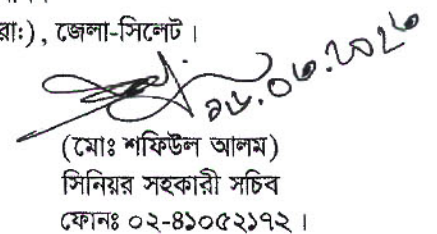 রা:), জেলা-সিলেট।
(মোঃ শফিউল আলম)
সিনিয়র সহকারী সচিব
ফোনঃ ০২-৪১০৫২১৭২।